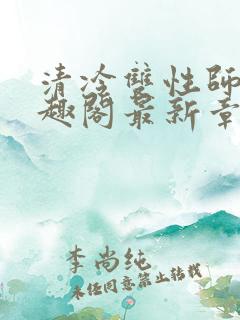 清冷雙性師
趣閣最新章
李尚纯
未经同意禁止转载